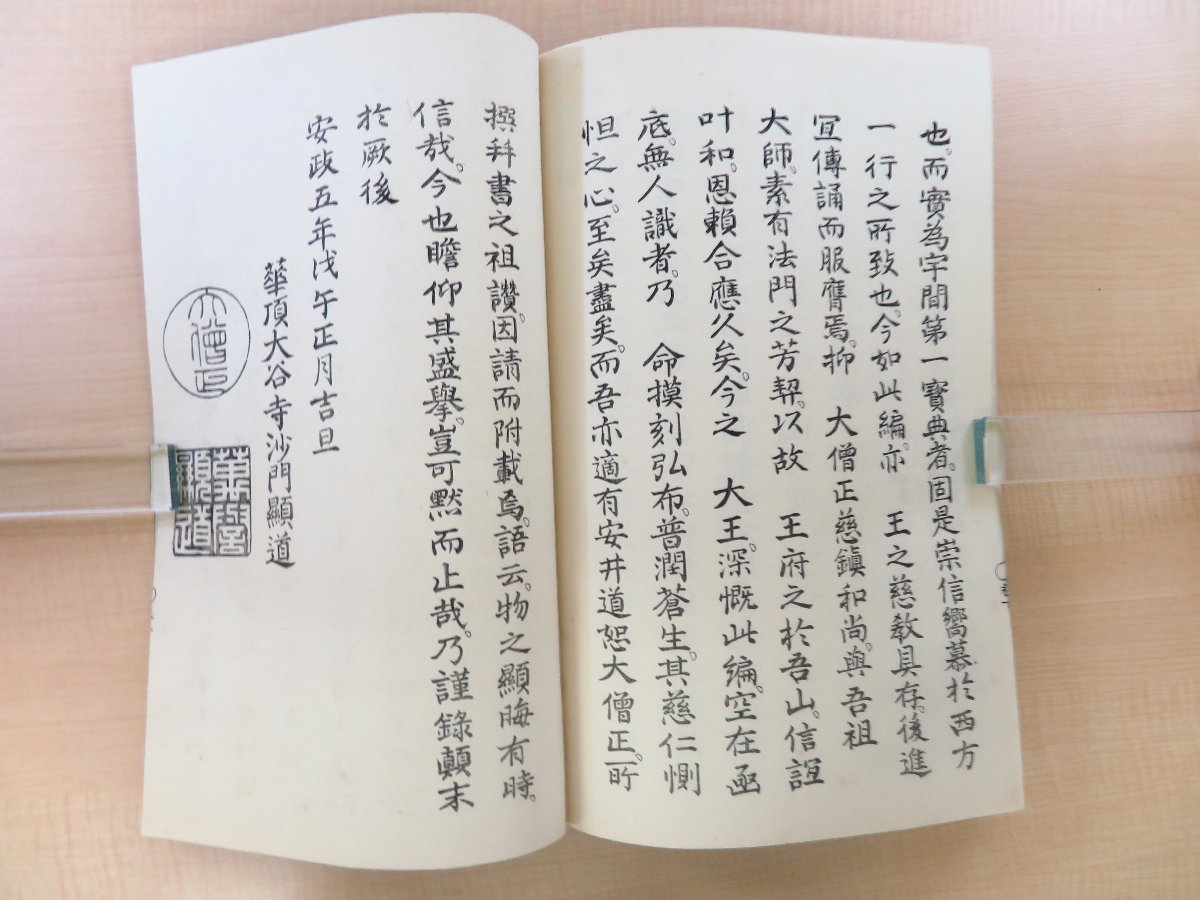 也。而實為宇間第一寶典者。固是崇信嚮慕於西方
一行之所致也。今如此編。亦　王之慈教具存。後進
宜傳誦而服膺焉。抑　大僧正慈鎮和尚。與吾祖
大師。素有法門之芳契。以故　王府之於吾山。信誼
叶和。恩賴合應久矣。今之　大王。深慨此編。空在函
底。無人識者。乃　命摸刻弘布。普潤蒼生。其慈仁惻
怛之心。至矣盡矣。而吾亦適有安井道恕大僧正。所
撰幷書之祖讚。因請而附載焉。語云。物之顯晦有時。
信哉。今也瞻仰其盛擧。豈可默而止哉。乃謹錄顛末
於厥後
安政五年戊午正月吉旦
華頂大谷寺沙門顯道
大僧正
顯道